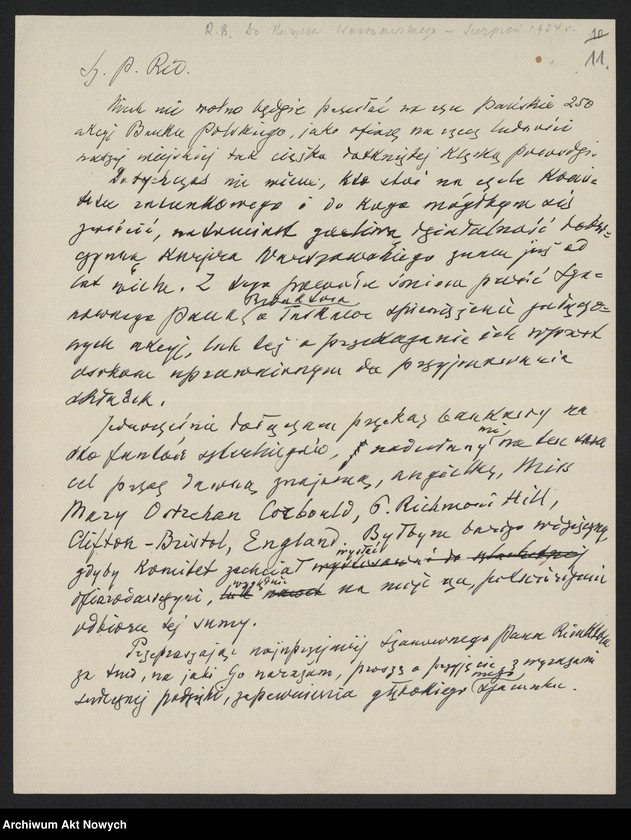 R.B. Do Kurjera Warszawskiego – Sierpień 1934 r.
10
11.
Sz. P. Red.
Niech mi wolno będzie przesłać na ręce Pańskie 250
akcji Banku Polskiego, jako ofiarę na rzecz ludności
naszej wiejskiej tak ciężko dotkniętej klęską powodzi.
Dotychczas nie wiem, kto stoi na czele Komi-
tetu ratunkowego i do kogo mógłbym się
zwrócić, natomiast działalność dobro-
czynną Kurjera Warszawskiego znam już od
lat wielu. Z tego powodu śmiem prosić Sza-
nownego Pana Redaktora o łaskawe spieniężenie załączo-
nych akcji, lub też o przekazanie ich wprost
osobom uprawnionym do przyjmowania
składek.
Jednocześnie dołączam przekaz bankowy na
sto funtów szterlingów, nadesłany mi na ten sam
cel przez dawną znajomą, angielkę, Miss
Mary Corbould, 6. Richmond Hill,
Clifton – Bristol, England. Byłbym bardzo wdzięczny,
gdyby Komitet zechciał wysłać
ofiarodawczyni, względnie na moje ręce, potwierdzenie
odbioru tej sumy.
Przepraszając najuprzejmiej Szanownego Pana Redaktora
za trud, na jaki Go narażam, proszę o przyjęcie, z wyrazami
serdecznej podzięki, zapewnienia głębokiego mego szacunku.
Archiwum Akt Nowych